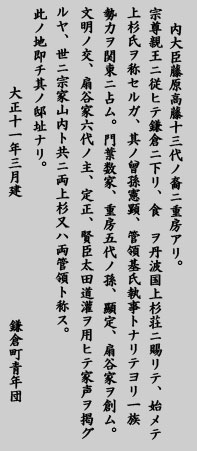 内大臣藤原高藤十三代ノ裔ニ重房アリ。
宗尊親王ニ従ヒテ鎌倉ニ下リ、食　ヲ丹波国上杉荘ニ賜リテ、始メテ
上杉氏ヲ称セルガ、其ノ曾孫憲顕、管領基氏執事トナリテヨリ一族
勢力ヲ関東ニ占ム。門葉数家、重房五代ノ孫、顯定、扇谷家ヲ創ム。
文明ノ交、扇谷家六代ノ主、定正、賢臣太田道灌ヲ用ヒテ家声ヲ揚グ
ルヤ、世ニ宗家山内ト共ニ両上杉又ハ両管領ト称ス。
此ノ地即チ其ノ邸址ナリ。
大正十一年三月建　鎌倉町青年団